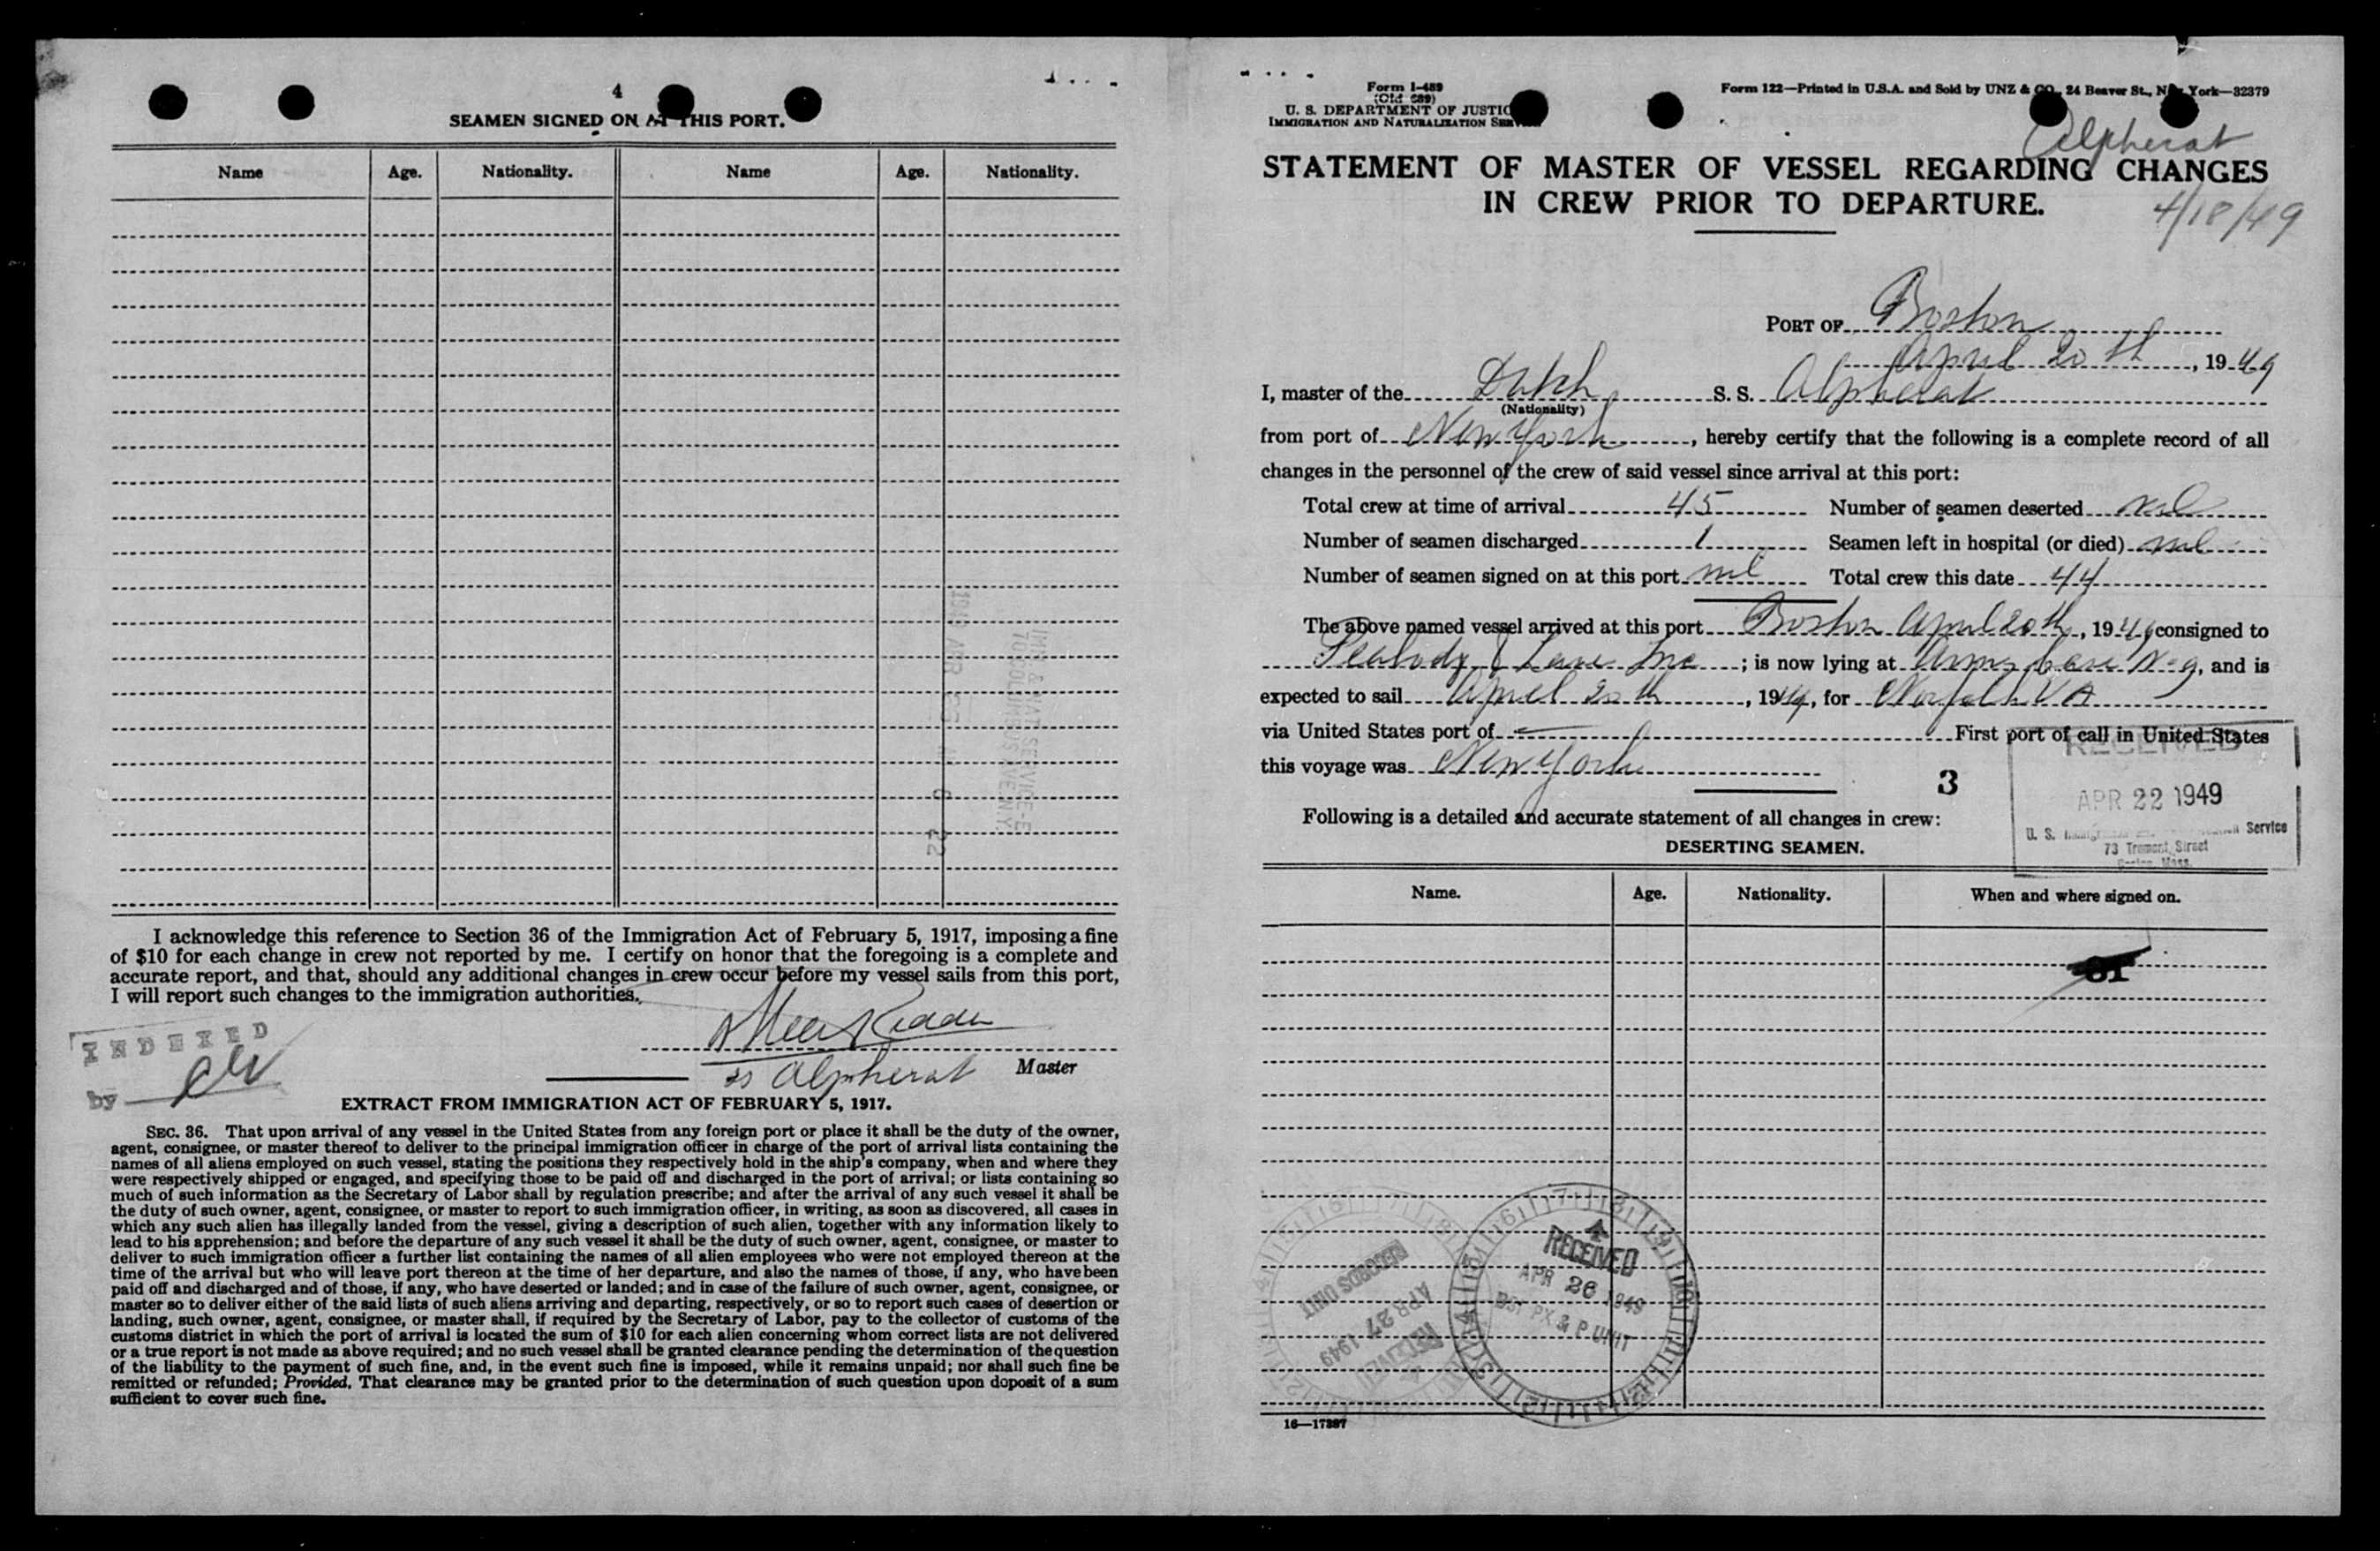 4
SEAMEN SIGNED ON AT THIS PORT.
Name Age. Nationality. Name Age. Nationality.
I acknowledge this reference to Section 36 of the Immigration Act of February 5, 1917, imposing a fine
of $10 for each change in crew not reported by me. I certify on honor that the foregoing is a complete and
accurate report, and that, should any additional changes in crew occur before my vessel sails from this port,
I will report such changes to the immigration authorities.
INDEXED
by
ss Alpherat Master
EXTRACT FROM IMMIGRATION ACT OF FEBRUARY 5, 1917.
SEC. 36. That upon arrival of any vessel in the United States from any foreign port or place it shall be the duty of the owner,
agent, consignee, or master thereof to deliver to the principal immigration officer in charge of the port of arrival lists containing the
names of all aliens employed on such vessel, stating the positions they respectively hold in the ship's company, when and where they
were respectively shipped or engaged, and specifying those to be paid off and discharged in the port of arrival; or lists containing so
much of such information as the Secretary of Labor shall by regulation prescribe; and after the arrival of any such vessel it shall be
the duty of such owner, agent, consignee, or master to report to such immigration officer, in writing, as soon as discovered, all cases in
which any such alien has illegally landed from the vessel, giving a description of such alien, together with any information likely to
lead to his apprehension; and before the departure of any such vessel it shall be the duty of such owner, agent, consignee, or master to
deliver to such immigration officer a further list containing the names of all alien employees who were not employed thereon at the
time of the arrival but who will leave port thereon at the time of her departure, and also the names of those, if any, who have been
paid off and discharged and of those, if any, who have deserted or landed; and in case of the failure of such owner, agent, consignee, or
master so to deliver either of the said lists of such aliens arriving and departing, respectively, or so to report such cases of desertion or
landing, such owner, agent, consignee, or master shall, if required by the Secretary of Labor, pay to the collector of customs of the
customs district in which the port of arrival is located the sum of $10 for each alien concerning whom correct lists are not delivered
or a true report is not made as above required; and no such vessel shall be granted clearance pending the determination of the question
of the liability to the payment of such fine, and, in the event such fine is imposed, while it remains unpaid; nor shall such fine be
remitted or refunded; Provided, That clearance may be granted prior to the determination of such question upon doposit of a sum
sufficient to cover such fine.
Form I-489
(Old 689)
U. S. DEPARTMENT OF JUSTICE
IMMIGRATION AND NATURALIZATION SERVICE
Form 122—Printed in U.S.A. and Sold by UNZ & CO., 24 Beaver St., New York—32379
Alpherat
STATEMENT OF MASTER OF VESSEL REGARDING CHANGES
IN CREW PRIOR TO DEPARTURE.
4/18/49
PORT OF Boston
April 20th, 1949
I, master of the Dutch S. S. Alpherat
(Nationality)
from port of New York, hereby certify that the following is a complete record of all
changes in the personnel of the crew of said vessel since arrival at this port:
Total crew at time of arrival 45 Number of seamen deserted nil
Number of seamen discharged 1 Seamen left in hospital (or died) nil
Number of seamen signed on at this port nil Total crew this date 44
The above named vessel arrived at this port Boston April 20th, 1949 consigned to
Peabody & Lane Inc; is now lying at Army base N-9, and is
expected to sail April 20th, 1949, for Norfolk VA
via United States port of — First port of call in United States
this voyage was New York
3
RECEIVED
APR 22 1949
U. S. Service
73 Tremont Street
Boston, Mass.
Following is a detailed and accurate statement of all changes in crew:
DESERTING SEAMEN.
Name. Age. Nationality. When and where signed on.
RECEIVED
APR 26 1949
RECORDS UNIT
APR 27 1949
RECEIVED
16—17387